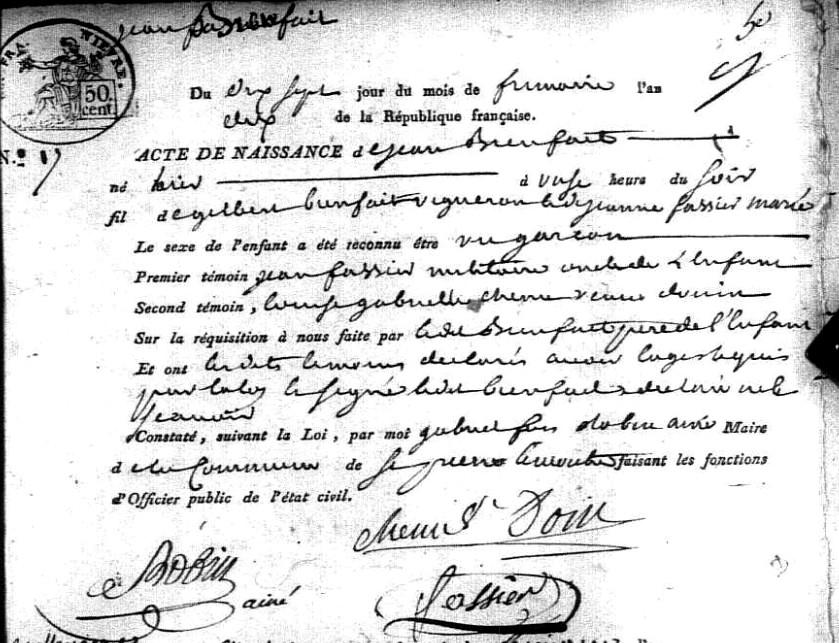 Jean Bienfait
NIEVRE.
50.
cent.
Du dix sept jour du mois de frimaire l'an
dix de la République française.
N.º
ACTE DE NAISSANCE de Jean Bienfait
né hier à onze heure du soir
fil de gilbert bienfait vigneron et de jeanne fassier mariés
Le sexe de l'enfant a été reconnu être un garcon
Premier témoin jean fassier militaire oncle de L'Enfant
Second témoin, Louise gabrielle chenu veuve doin
Sur la réquisition à nous faite par ledit Bienfait pere de l'Enfant
Et ont lesdits temoins declarés avoir l'age requis
par la loy et signé ledit bienfait a declaré ne le
scavoir
Constaté, suivant la Loi, par moi gabriel fois Robin ainé Maire
de la Commune de St pierre lemoutier faisant les fonctions
d'Officier public de l'état civil.
chenu Ve Doin
Robin
ainé
fassier